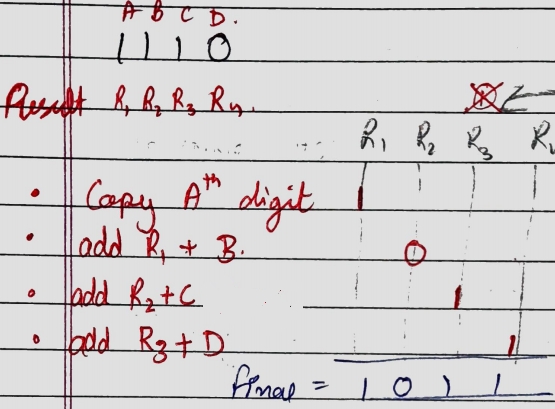 A B C D.
1 1 1 0
Result R1 R2 R3 R4.
R1 R2 R3
• Copy Ath digit 1
• add R1 + B. 0
• add R2 + C 1
• add R3 + D 1
final = 1 0 1 1